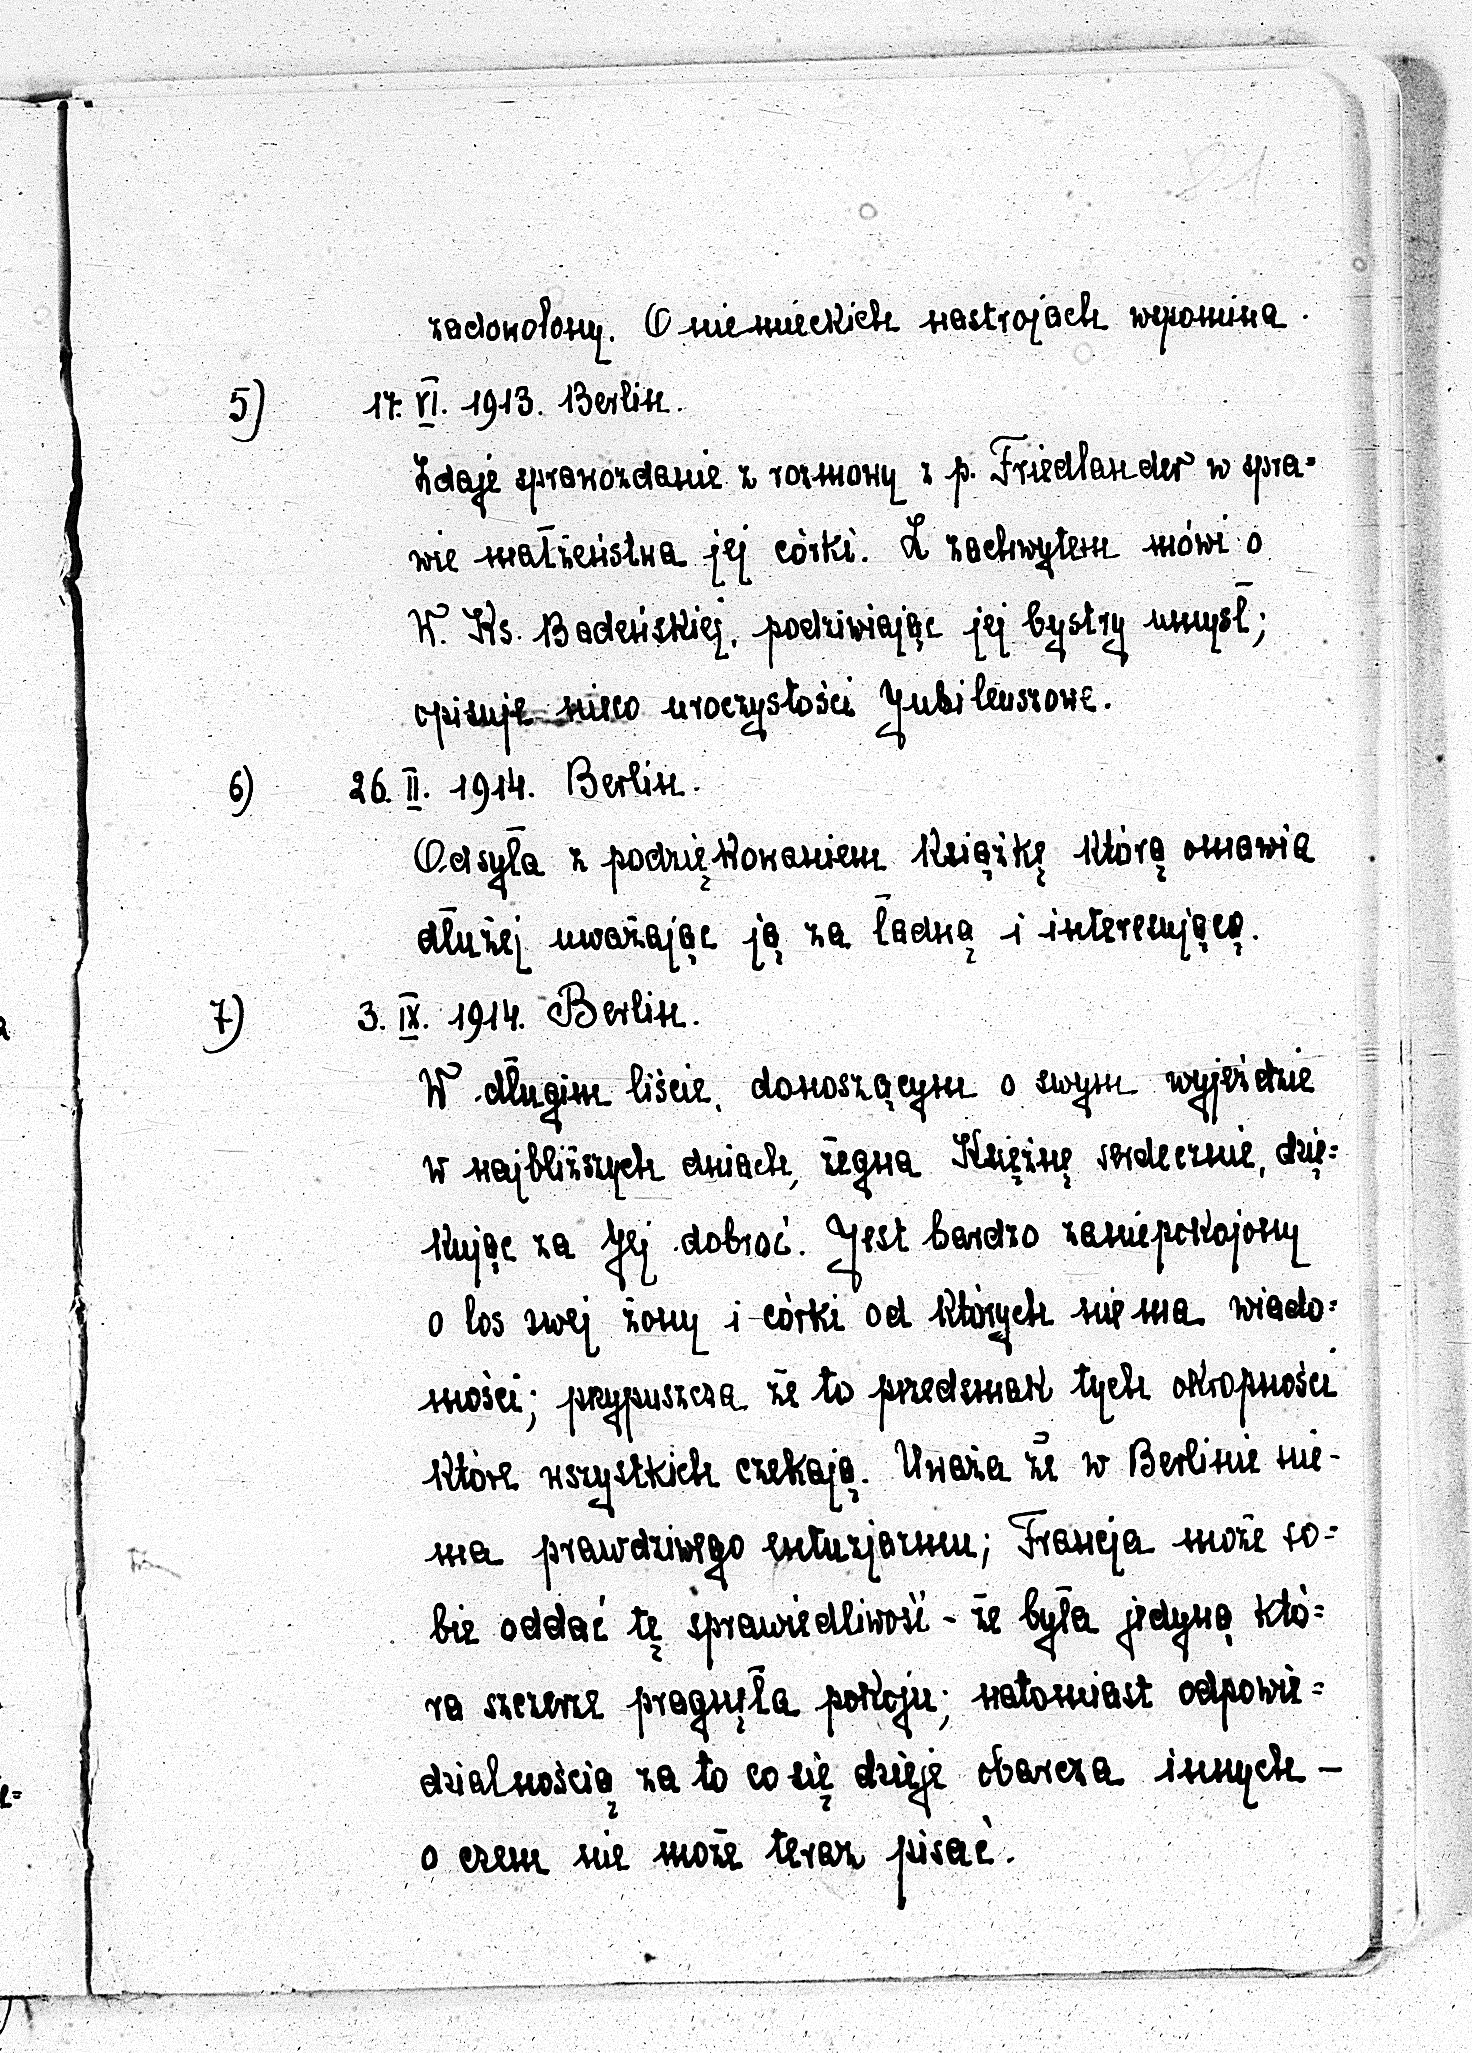 21
zadowolony. O niemieckich nastrojach wspomina.
5) 17. VI. 1913. Berlin.
Zdaje sprawozdanie z rozmowy z p. Friedlander w spra=
wie małżeństwa jej córki. Z zachwytem mówi o
W. Ks. Badeńskiej, podziwiając jej bystry umysł;
opisuje nieco uroczystości Jubileuszowe.
6) 26. II. 1914. Berlin.
Odsyła z podziękowaniem książkę którą omawia
dłużej uważając ją za ładną i interesującą.
7) 3. IX. 1914. Berlin.
W długim liście, donoszącym o swym wyjeździe
w najbliższych dniach, żegna Księżnę serdecznie, dzię=
kując za Jej dobroć. Jest bardzo zaniepokojony
o los swej żony i córki od których nie ma wiado=
mości; przypuszcza że to przedsmak tych okropności
które wszystkich czekają. Uważa że w Berlinie nie-
ma prawdziwego entuzjazmu; Francja może so=
bie oddać tę sprawiedliwość - że była jedyną któ=
ra szczerze pragnęła pokoju; natomiast odpowie=
dzialnością za to co się dzieje obarcza innych -
o czem nie może teraz pisać.